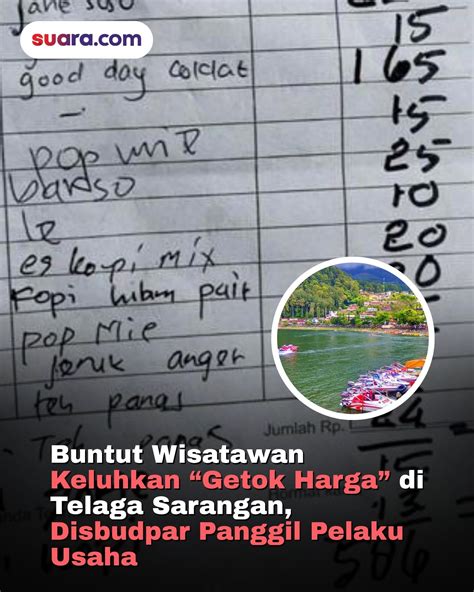 jahe susu
suara.com
15
good day coldat
165
15
pop mie
25
bakso
10
le
20
es kopi mix
20
Kopi hitam pait
pop Mie
jeruk anger
teh panas
Jumlah Rp.
24
15
13
586
Buntut Wisatawan
Keluhkan “Getok Harga” di
Telaga Sarangan,
Disbudpar Panggil Pelaku
Usaha